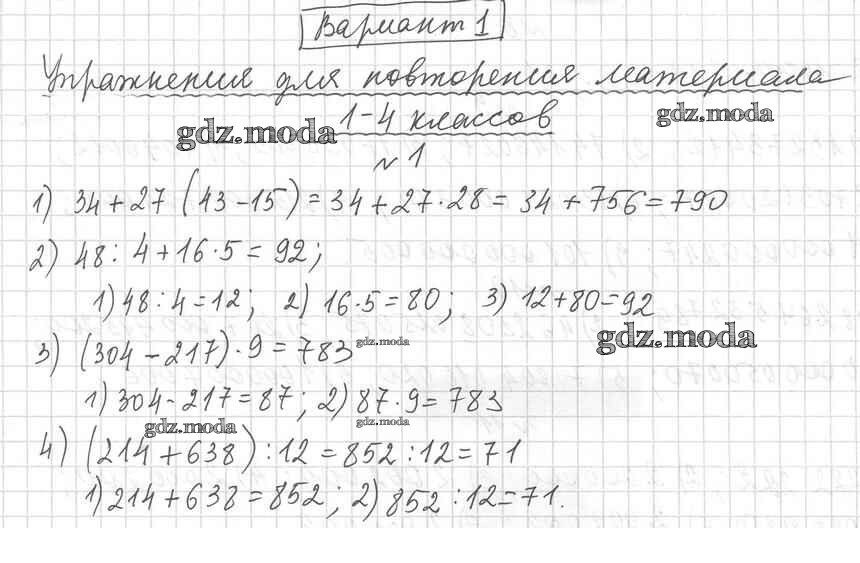 Вариант 1
Упражнения для повторения материала
1-4 классов
gdz.moda
gdz.moda
№ 1
1) 34 + 27 (43 - 15) = 34 + 27 · 28 = 34 + 756 = 790
2) 48 : 4 + 16 · 5 = 92;
1) 48 : 4 = 12; 2) 16 · 5 = 80; 3) 12 + 80 = 92
gdz.moda
3) (304 - 217) · 9 = 783
gdz.moda
1) 304 - 217 = 87; 2) 87 · 9 = 783
gdz.moda
gdz.moda
4) (214 + 638) : 12 = 852 : 12 = 71
1) 214 + 638 = 852; 2) 852 : 12 = 71.